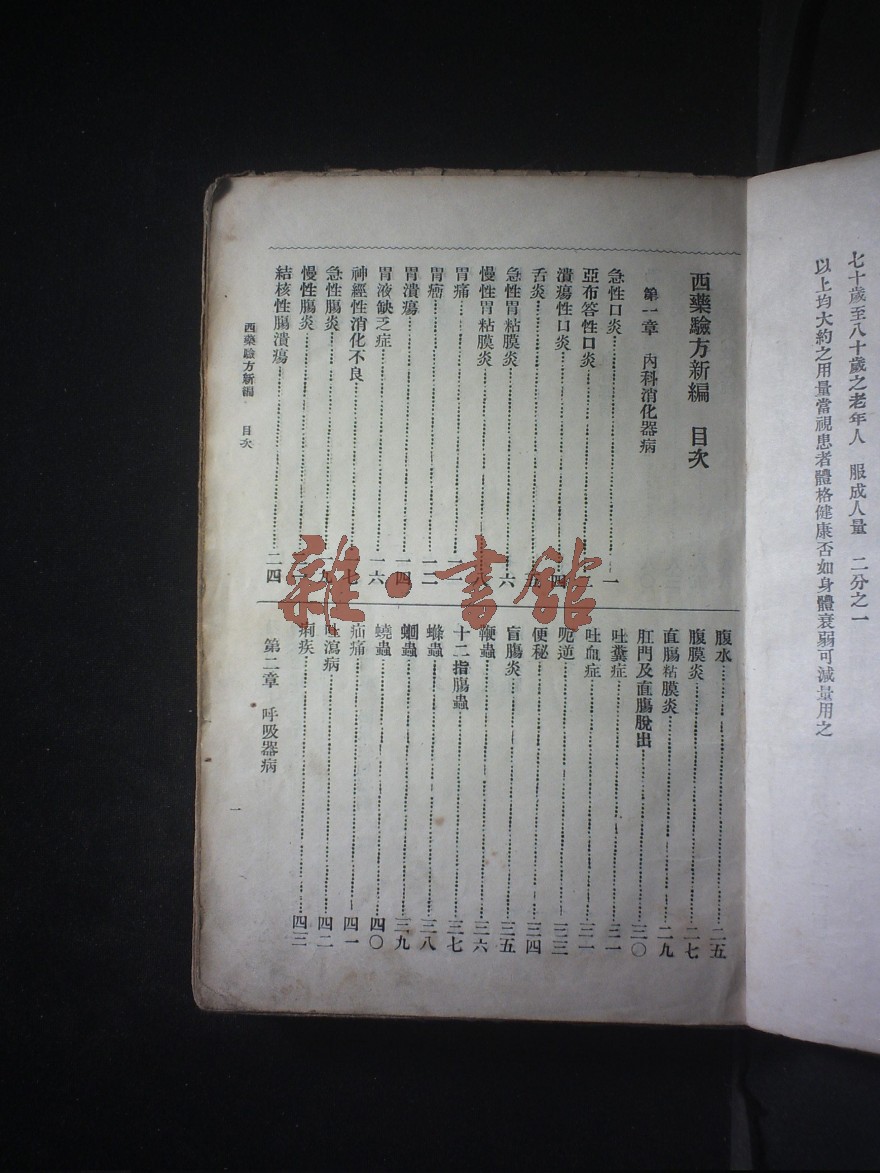 七十歲至八十歲之老年人 服成人量 二分之一
以上均大約之用量當視患者體格健康否如身體衰弱可減量用之
西藥驗方新編 目次
第一章 內科消化器病
急性口炎 一
亞布答性口炎
潰瘍性口炎 四
舌炎 五
急性胃粘膜炎 六
慢性胃粘膜炎 八
胃痛
胃癌
胃潰瘍 一四
胃液缺乏症 一六
神經性消化不良 一七
急性腸炎 一九
慢性腸炎
結核性腸潰瘍 二四
腹水 二五
腹膜炎 二七
直腸粘膜炎 二九
肛門及直腸脫出 三〇
吐糞症 三一
吐血症
呃逆 三三
便秘 三四
盲腸炎 三五
鞭蟲 三六
十二指腸蟲 三七
絛蟲 三八
蛔蟲 三九
蟯蟲 四〇
疝痛 四一
吐瀉病 四二
痢疾 四三
第二章 呼吸器病
西藥驗方新編 目次
一
雜·書館